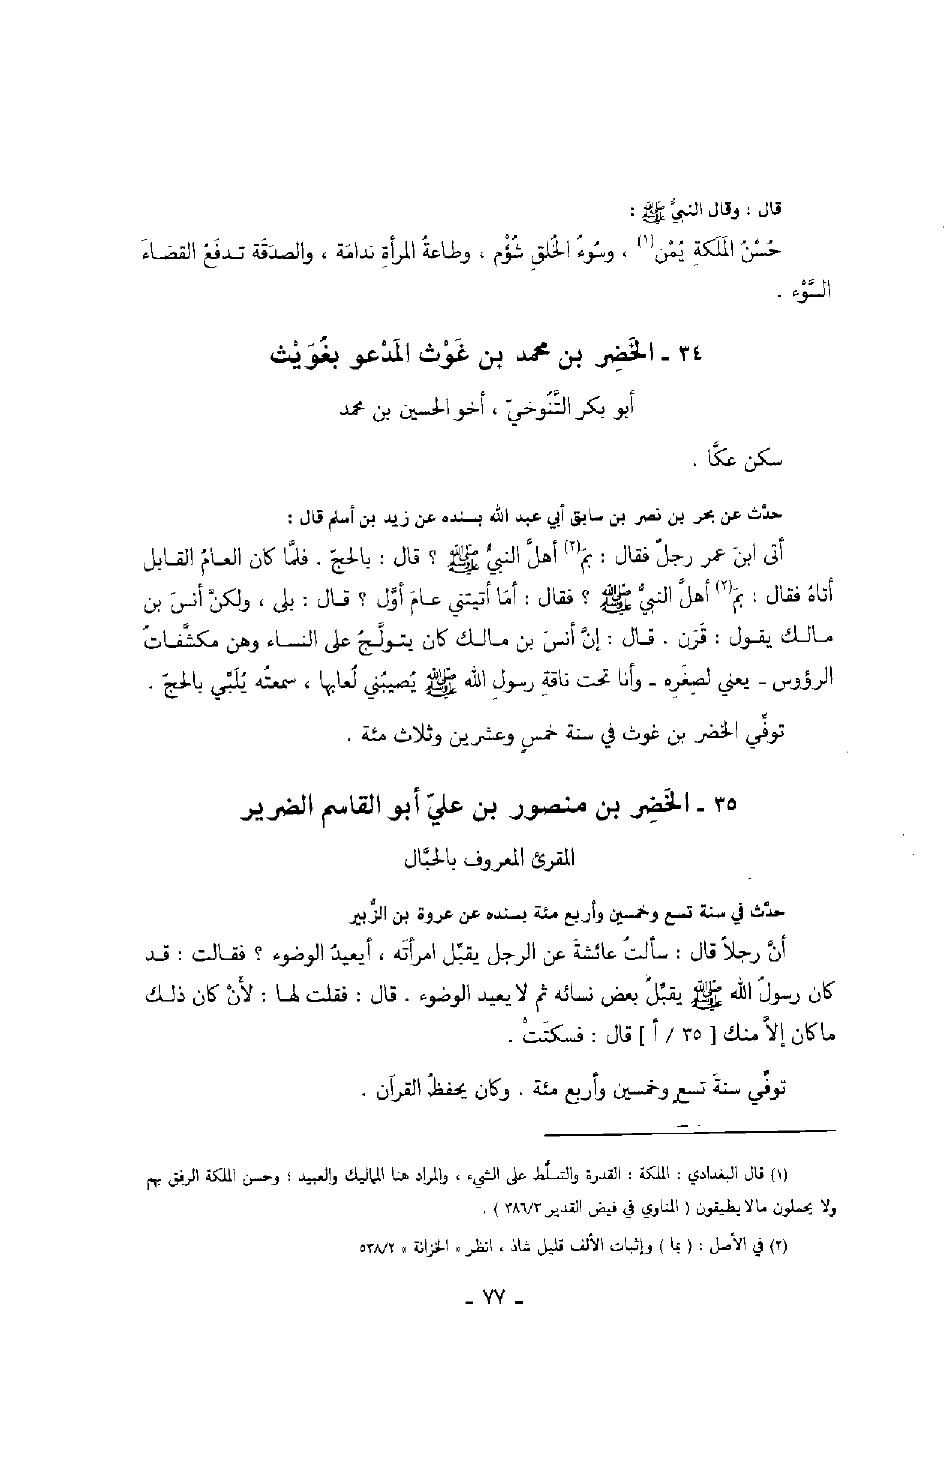 قال : وقال النبيُّ ﷺ :
حُسْنُ المَلَكَةِ يُمْن(١) ، وسُوءُ الخُلقِ شُؤْم ، وطاعةُ المرأةِ ندامَة ، والصدَقَة تـدفَعُ القضـاءَ
السَّوْء .
٣٤ ـ الخَضِر بن محمد بن غَوْث المَدْعو بغُوَيْث
أبو بكر التَّنُوخيّ ، أخو الحسين بن محمد
سكن عكَّا .
حدَّث عن بحر بن نصر بن سابق أبي عبد الله بسنده عن زيد بن أسلم قال :
أتى ابنَ عمر رجلٌ فقال : بَمَ(٢) أهلَّ النبيُّ ﷺ ؟ قال : بالحجّ . فلمَّا كان العـامُ القـابل
أتاهُ فقال : بَمَ(٢) أهلَّ النبيُّ ﷺ ؟ فقال : أمَا أتيتَني عـامَ أوَّل ؟ قـال : بلى ، ولكنَّ أنسَ بن
مـالـك يقـول : قَرَن . قـال : إنَّ أنسَ بن مـالـك كان يتـولَّـجُ على النسـاء وهن مكشَّفـاتُ
الرؤوس ـ يعني لصغَره ـ وأنا تحت ناقةِ رسول الله ﷺ يُصيبُني لُعابها ، سمعتُه يُلبِّي بالحجّ .
توفِّي الخضر بن غوث في سنة خمسٍ وعشرين وثلاث مئة .
٣٥ ـ الخَضِر بن منصور بن عليّ أبو القاسم الضرير
المقرئ المعروف بالحبَّال
حدَّث في سنة تسع وخمسين وأربع مئة بسنده عن عروة بن الزُّبير
أنَّ رجلاً قال : سألتُ عائشةَ عن الرجل يقبِّل امرأتَه ، أيعيدُ الوضوء ؟ فقـالت : قـد
كان رسولُ الله ﷺ يقبِّلُ بعضَ نسائه ثم لا يعيد الوضوء . قال : فقلت لهـا : لأَنْ كان ذلـك
ماكان إلاَّ منك [ ٣٥ / أ ] قال : فسكتَتْ .
توفِّي سنةَ تسعٍ وخمسين وأربع مئة . وكان يحفظُ القرآن .
(١) قال البغدادي : الملكة : القدرة والتسلُّط على الشيء ، والمراد هنا المماليك والعبيد ؛ وحسن الملكة الرفق بهم
ولا يحملون مالا يطيقون ( المناوي في فيض القدير ٣٨٦/٣ ) .
(٢) في الأصل : ( بما ) وإثبات الألف قليل شاذ ، انظر « الخزانة » ٥٣٨/٢
ـ ٧٧ ـ